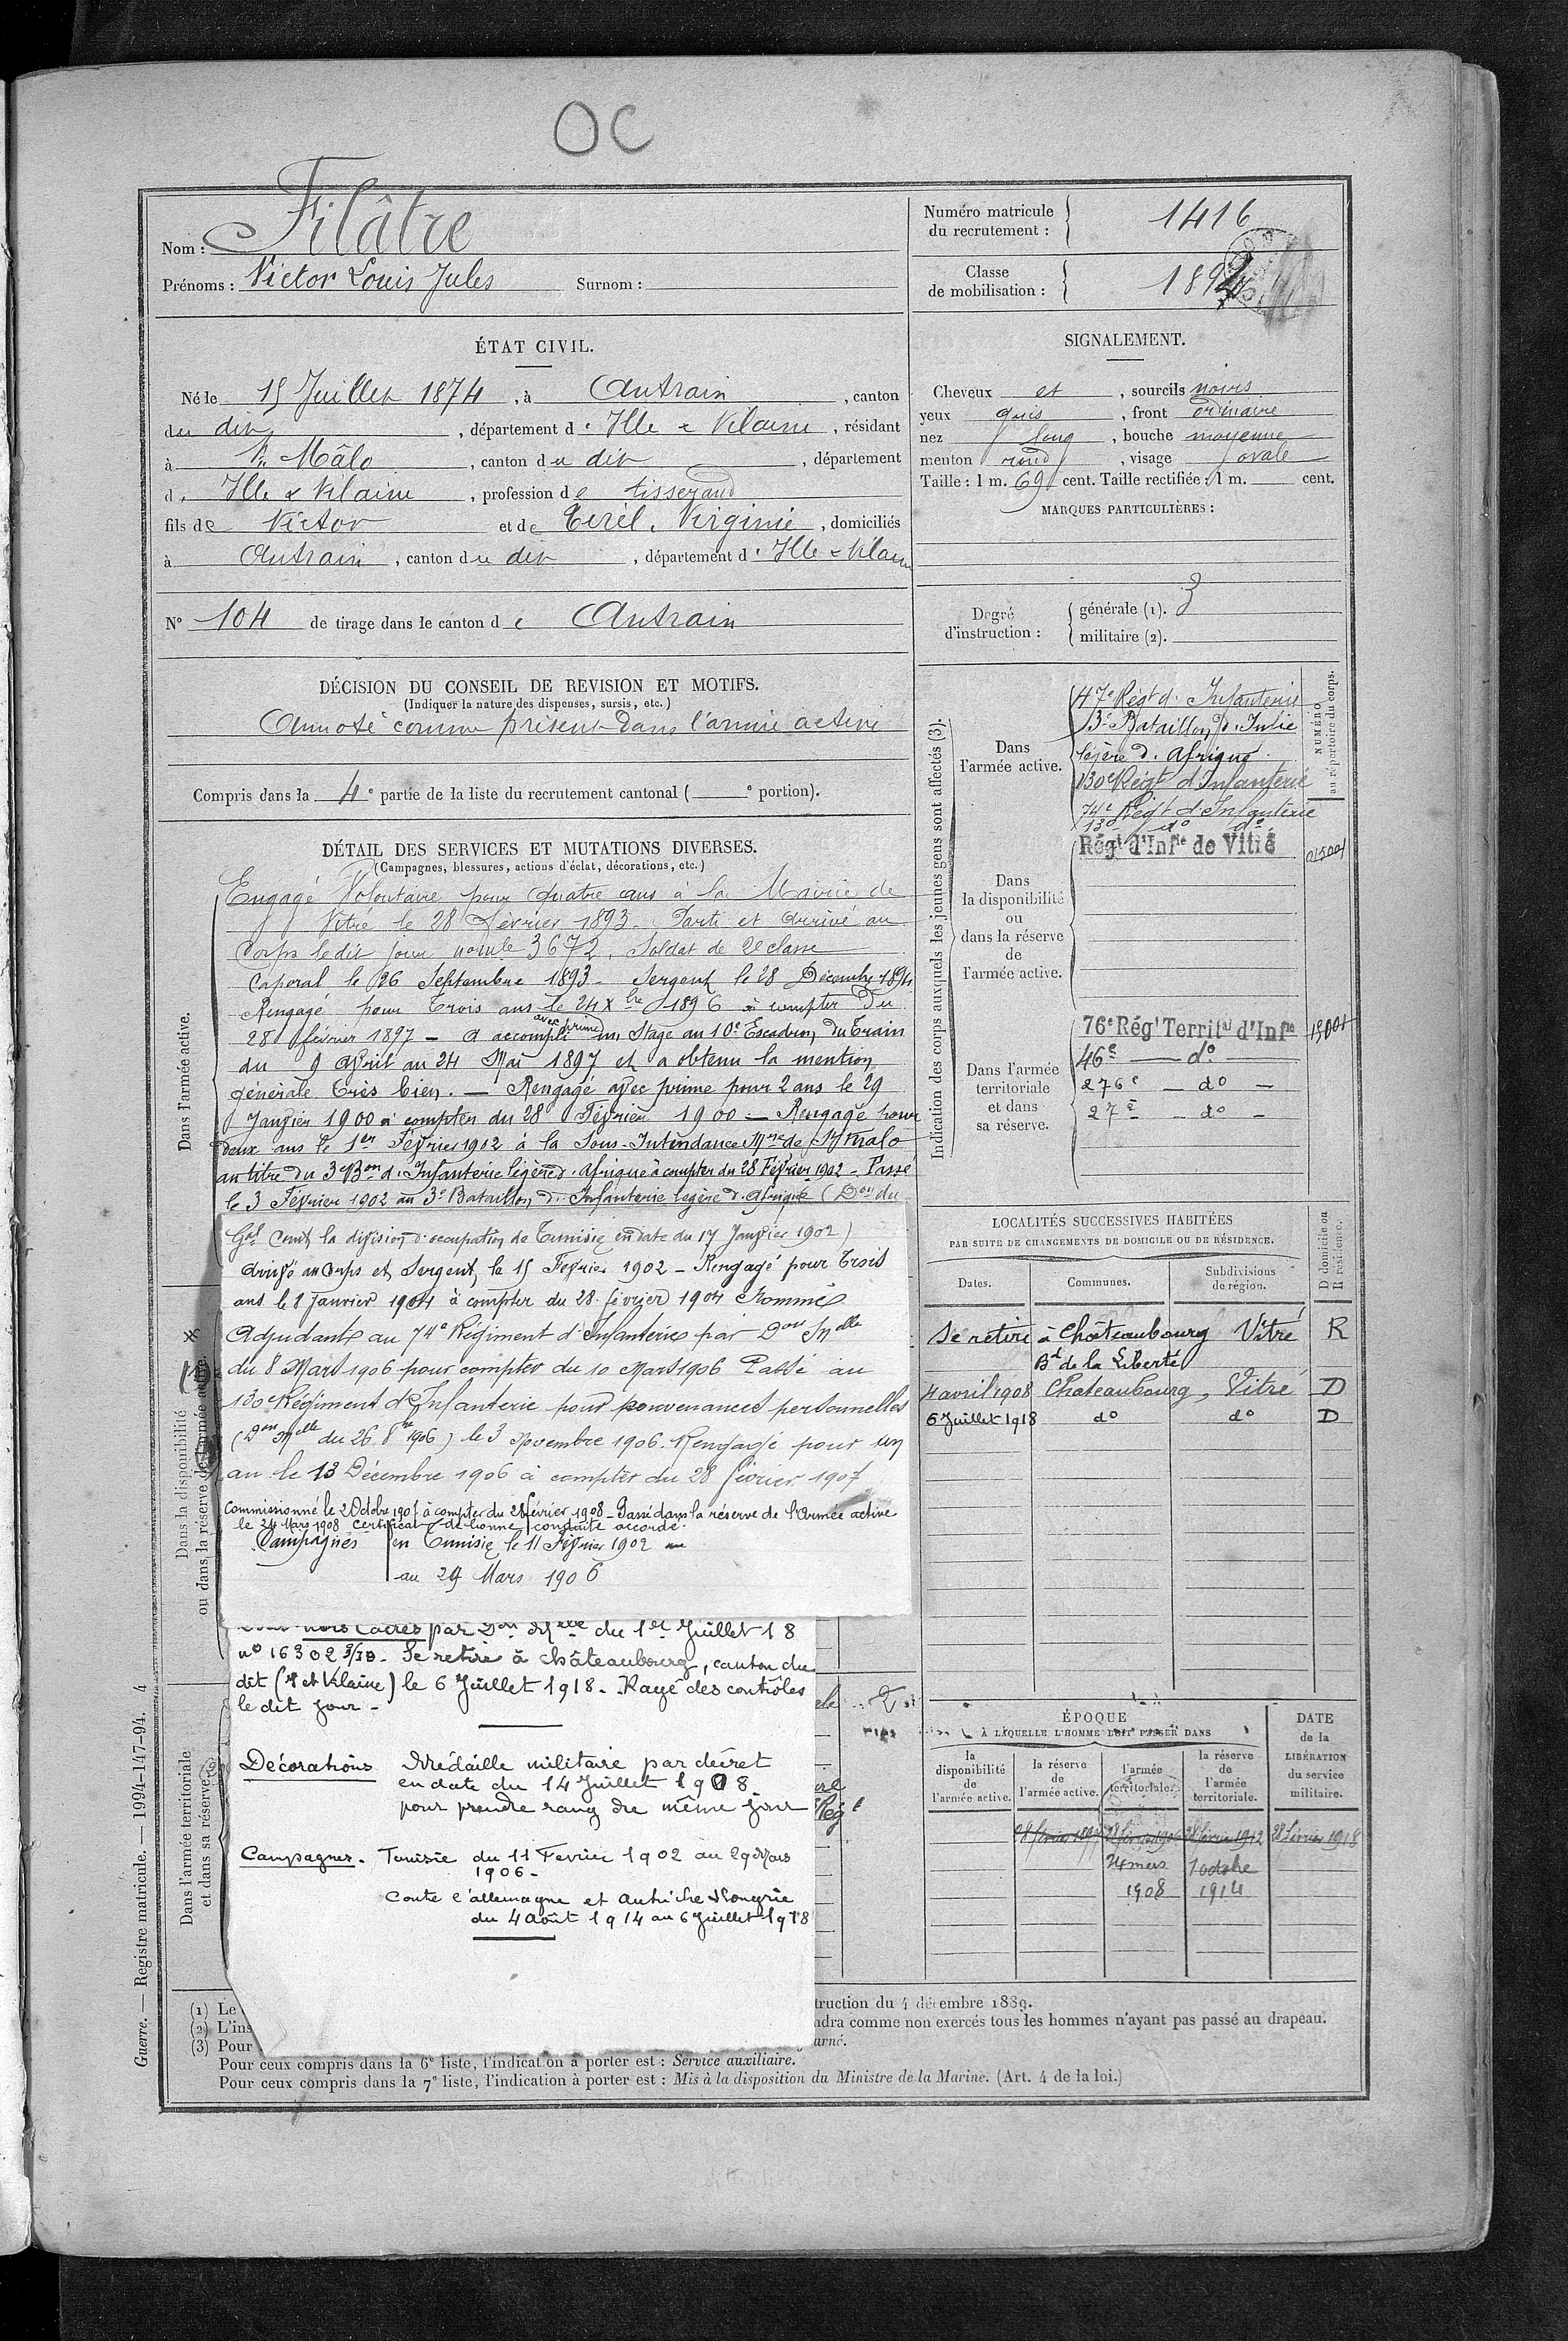 OC
Nom : Filâtre
Prénoms : Victor Louis Jules Surnom :
Numéro matricule du recrutement : 1416
Classe de mobilisation : 189
ÉTAT CIVIL.
Né le 15 Juillet 1874, à Antrain, canton
du dit, département d'Ille & Vilaine, résidant
à St Mâlo, canton du dit, département
d' Ille & Vilaine, profession de tisserand
fils de Victor et de Tirél, Virginie, domiciliés
à Antrain, canton du dit, département d'Ille & Vilaine
N° 104 de tirage dans le canton d' Antrain
SIGNALEMENT.
Cheveux et, sourcils noirs
yeux gris, front ordinaire
nez long, bouche moyenne
menton rond, visage ovale
Taille : 1 m. 69 cent. Taille rectifiée : 1 m. cent.
MARQUES PARTICULIÈRES :
Degré d'instruction : générale (1). 3
militaire (2).
DÉCISION DU CONSEIL DE REVISION ET MOTIFS.
(Indiquer la nature des dispenses, sursis, etc.)
Annoté comme présent dans l'armée active
Compris dans la 4e partie de la liste du recrutement cantonal ( e portion).
DÉTAIL DES SERVICES ET MUTATIONS DIVERSES.
(Campagnes, blessures, actions d'éclat, décorations, etc.)
Dans l'armée active.
Engagé Volontaire pour quatre ans à la Mairie de
Vitré le 28 Février 1893. Parti et arrivé au
Corps le dit jour no mle 3672. Soldat de 2e classe
Caporal le 26 Septembre 1893 - Sergent le 28 Décembre 1894
Rengagé pour Trois ans le 24 Xbre 1896 à compter du
avec prime
28 février 1897 - a accompli un Stage au 10e Escadron du Train
du 9 Avril au 24 Mai 1897 et a obtenu la mention
générale très bien. - Rengagé avec prime pour 2 ans le 29
Janvier 1900 à compter du 28 Février 1900 - Rengagé pour
deux ans le 1er Février 1902 à la Sous-Intendance Mre de St Malo
au titre du 3e Bon d'Infanterie légère d'Afrique à compter du 28 Février 1902 - Passé
le 3 Février 1902 au 3e Bataillon d'Infanterie légère d'Afrique (Don du
Gal Comdt la division d'occupation de Tunisie en date du 17 Janvier 1902)
arrivé au Corps et Sergent le 15 Février 1902 - Rengagé pour Trois
ans le 8 Janvier 1904 à compter du 28 février 1904 Nommé
Adjudant au 74e Régiment d'Infanterie par Don Melle
du 8 Mars 1906 pour compter du 10 Mars 1906 Passé au
130e Régiment d'Infanterie pour convenances personnelles
(Don Melle du 26 8bre 1906) le 3 Novembre 1906. Rengagé pour un
an le 13 Décembre 1906 à compter du 28 février 1907
Commissionné le 2 Octobre 1907 à compter du 28 février 1908 - Passé dans la réserve de l'Armée active
le 24 Mars 1908 Certificat de bonne conduite accordé.
Campagnes en Tunisie le 11 Février 1902
au 29 Mars 1906
Dans la disponibilité ou dans la réserve de l'armée active.
hors Cadres par Don Melle du 1er Juillet 18
no 16302 Se retire à Châteaubourg, canton du
dit (I et Vilaine) le 6 Juillet 1918 - Rayé des contrôles
le dit jour -
Décorations Médaille militaire par décret
en date du 14 Juillet 1908
pour prendre rang du même jour
Campagnes. Tunisie du 11 Février 1902 au 29 Mars
1906 -
Contre l'allemagne et Autriche Hongrie
du 4 Août 1914 au 6 Juillet 1918
Dans l'armée territoriale et dans sa réserve.
Indication des corps auxquels les jeunes gens sont affectés (3).
NUMÉRO au répertoire du corps.
Dans l'armée active.
47e Régt d'Infanterie
3e Bataillon d'Infie
légère d'Afrique.
130e Régt d'Infanterie
74e Régt d'Infanterie
130 do do
Dans la disponibilité ou dans la réserve de l'armée active.
Régt d'Infie de Vitré
Dans l'armée territoriale et dans sa réserve.
76e Régt Territal d'Infie
46e - do
276e - do -
27e - do -
LOCALITÉS SUCCESSIVES HABITÉES
PAR SUITE DE CHANGEMENTS DE DOMICILE OU DE RÉSIDENCE.
Dates. Communes. Subdivisions de région. D domicile ou R résidence.
Se retire à Châteaubourg Vitré R
Bd de la Liberté
4 avril 1908 Chateaubourg, Vitré D
6 Juillet 1918 do do D
ÉPOQUE
À LAQUELLE L'HOMME DOIT PASSER DANS
DATE de la LIBÉRATION du service militaire.
la disponibilité de l'armée active.
la réserve de l'armée active.
l'armée territoriale.
la réserve de l'armée territoriale.
28 février 1897 28 février 1906 28 février 1912 28 février 1918
24 mars 1908
1 octobre 1914
(1) Le
truction du 4 décembre 1889.
(2) L'ins
ndra comme non exercés tous les hommes n'ayant pas passé au drapeau.
(3) Pour
urné.
Pour ceux compris dans la 6e liste, l'indication à porter est : Service auxiliaire.
Pour ceux compris dans la 7e liste, l'indication à porter est : Mis à la disposition du Ministre de la Marine. (Art. 4 de la loi.)
Guerre. — Registre matricule. — 1994-147-94. 4